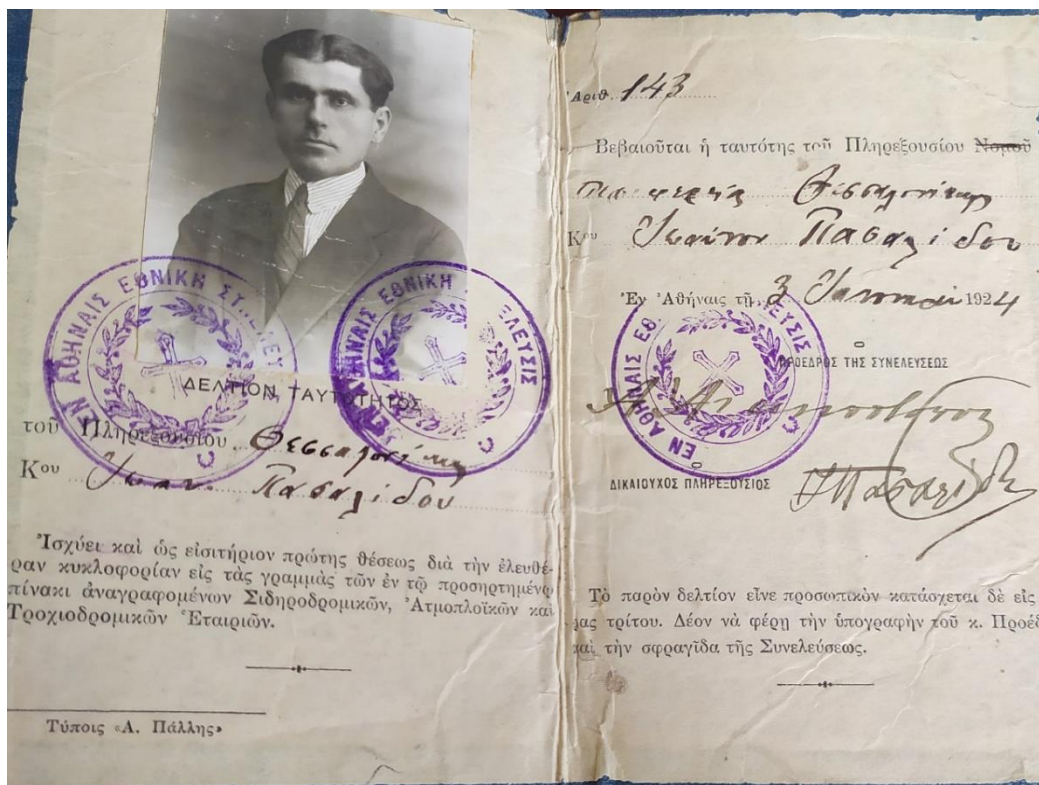 ΕΝ ΑΘΗΝΑΙΣ ΕΘΝΙΚΗ ΣΥΝΕΛΕΥ
ΕΘΝΙΚΗ ΕΛΕΥΣΙΣ
ΔΕΛΤΙΟΝ ΤΑΥΤΟΤΗΤΟΣ
τοῦ Πληρεξουσίου Θεσσαλονίκης
Κου Ιωαν. Πασαλίδου
Ἰσχύει καὶ ὡς εἰσιτήριον πρώτης θέσεως διὰ τὴν ἐλευθέ-
ραν κυκλοφορίαν εἰς τὰς γραμμὰς τῶν ἐν τῷ προσηρτημένῳ
πίνακι ἀναγραφομένων Σιδηροδρομικῶν, Ἀτμοπλοϊκῶν καὶ
Τροχιοδρομικῶν Ἑταιριῶν.
Τύποις «Α. Πάλλης»
Ἀριθ. 143
Βεβαιοῦται ἡ ταυτότης τοῦ Πληρεξουσίου Νομοῦ
Θεσσαλονίκης
Κου Ιωάννου Πασαλίδου
Ἐν Ἀθήναις τῇ 3 1924
ΕΝ ΑΘΗΝΑΙΣ ΕΘ ΛΕΥΣΙΣ
ΠΡΟΕΔΡΟΣ ΤΗΣ ΣΥΝΕΛΕΥΣΕΩΣ
Ο
ΔΙΚΑΙΟΥΧΟΣ ΠΛΗΡΕΞΟΥΣΙΟΣ
Ι Πασαλίδης
Τὸ παρὸν δελτίον εἶνε προσωπικὸν κατάσχεται δὲ εἰς
ρας τρίτου. Δέον νὰ φέρῃ τὴν ὑπογραφὴν τοῦ κ. Προέδ
καὶ τὴν σφραγῖδα τῆς Συνελεύσεως.